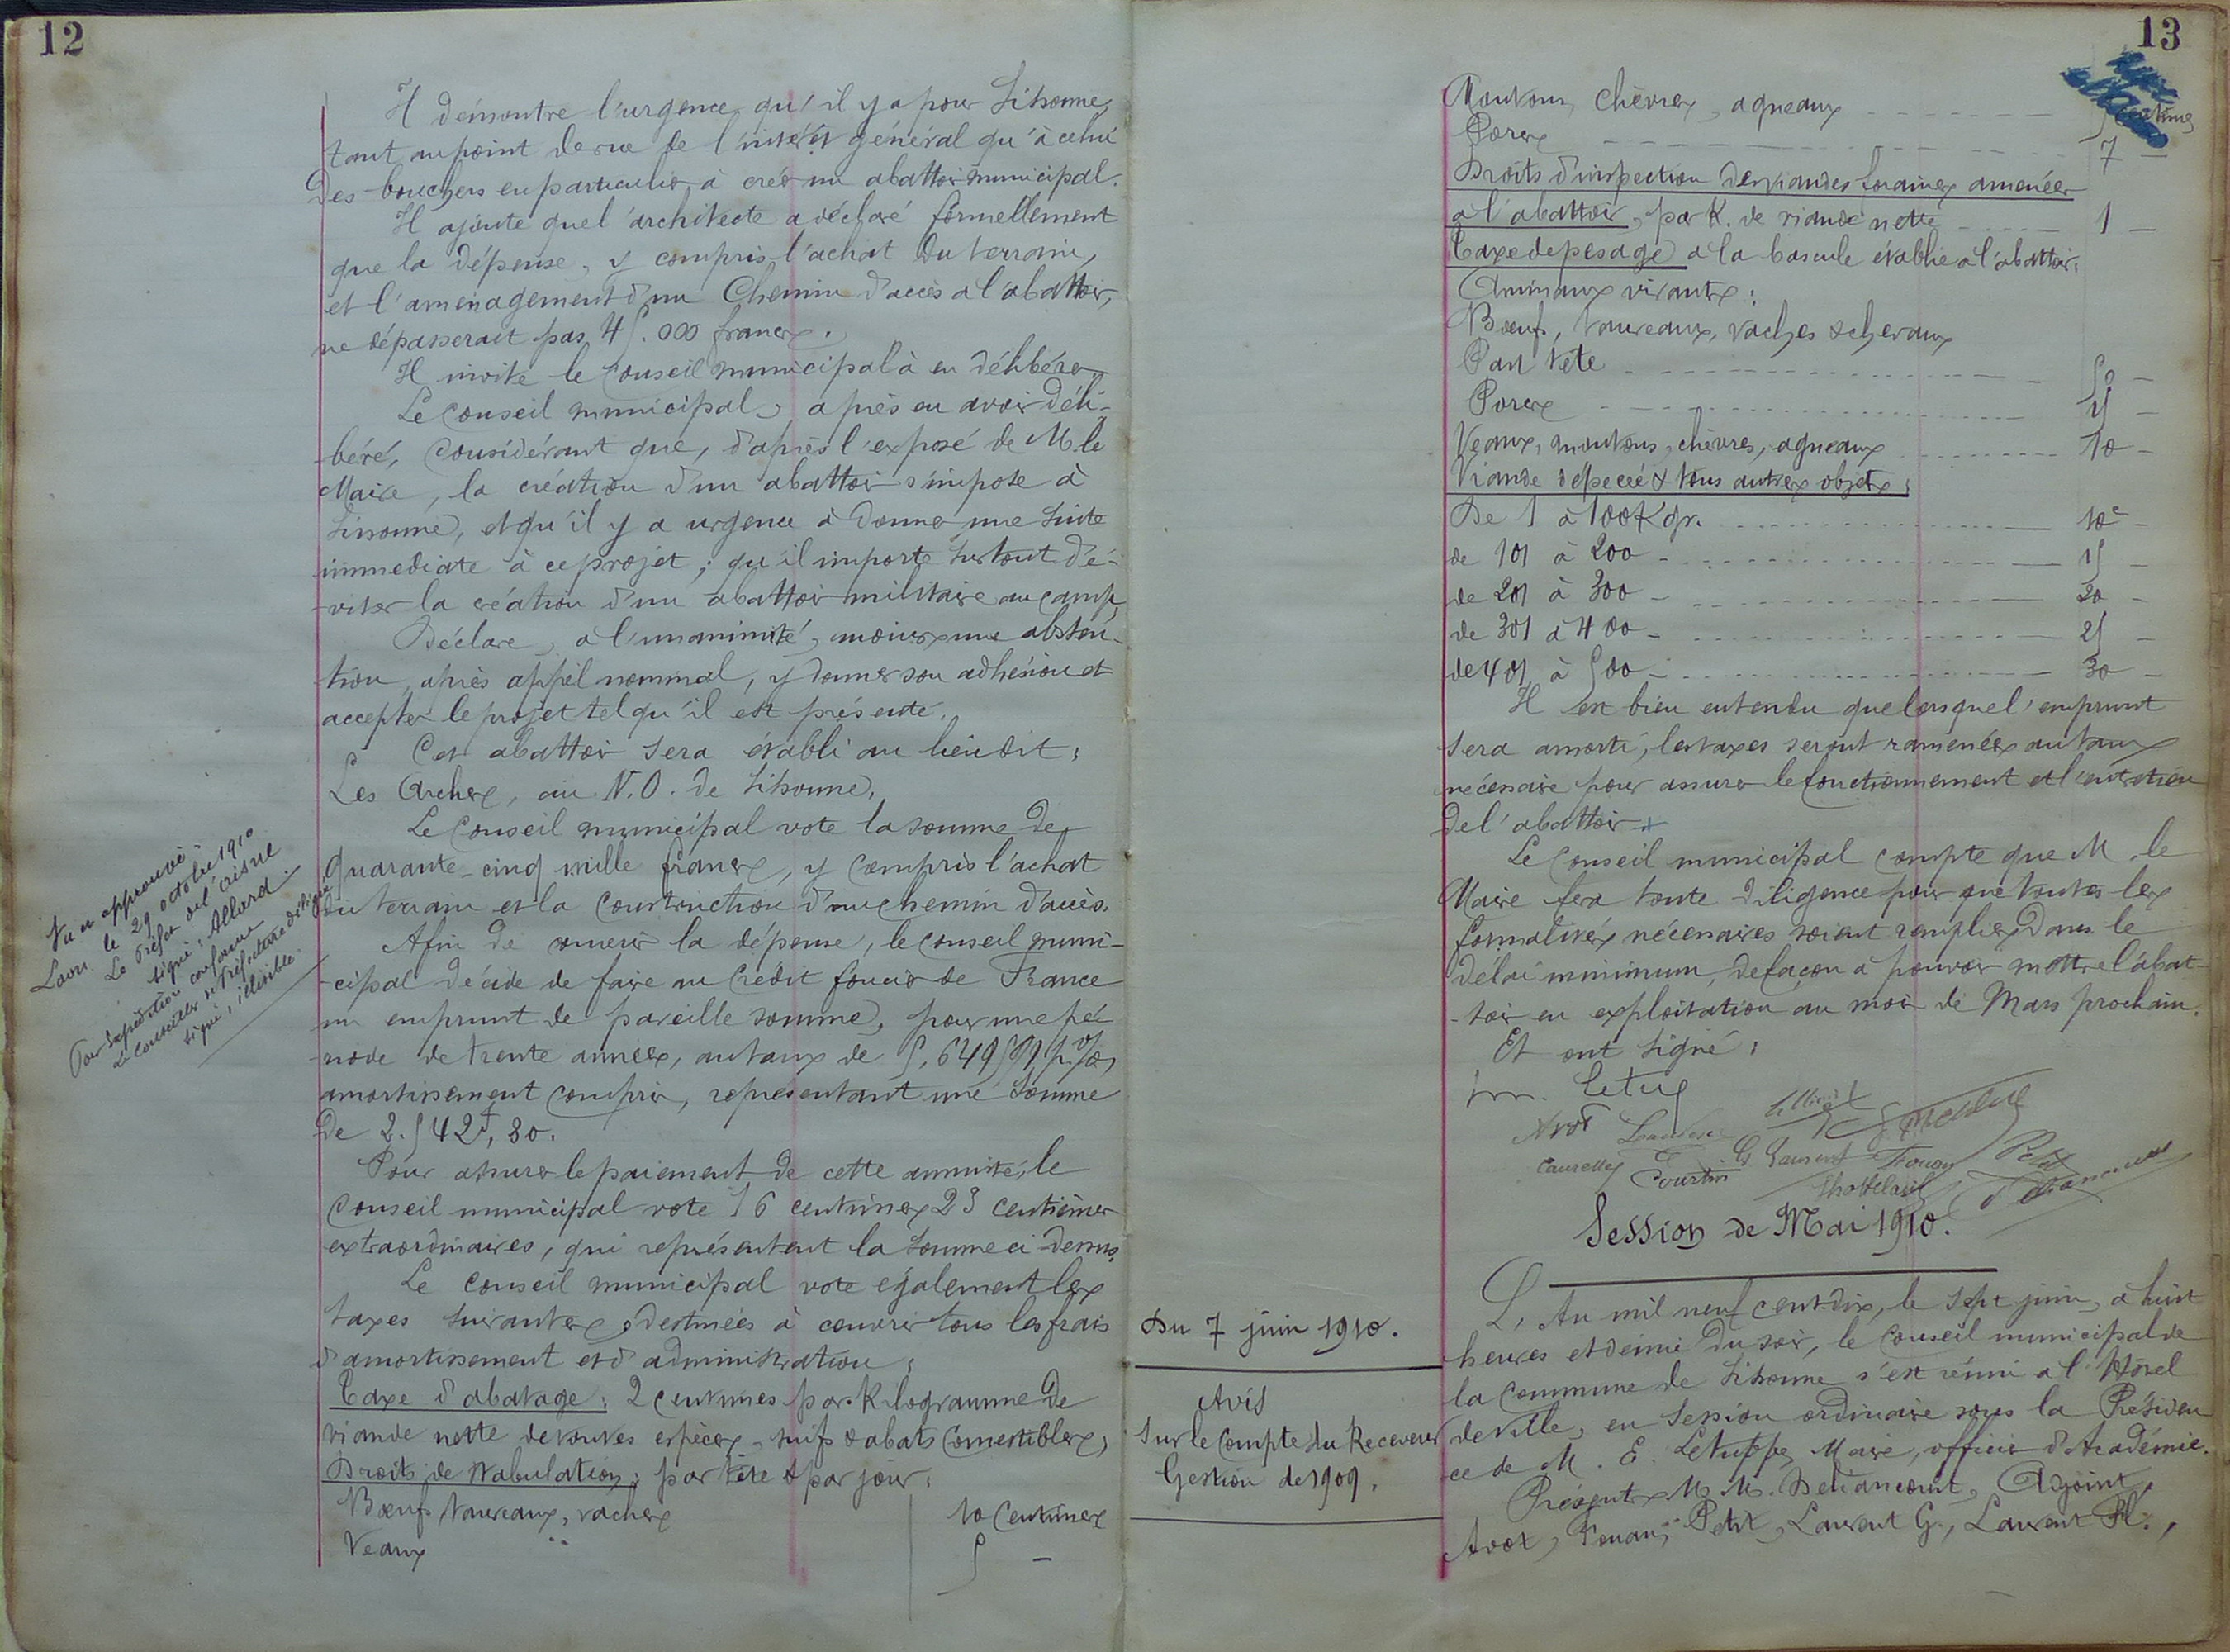 12
Il démontre l'urgence qu'il y a pour Sissonne,
tant au point de vue de l'intérêt général qu'à celui
des bouchers en particulier, à créer un abattoir municipal.
Il ajoute que l'architecte a déclaré formellement
que la dépense, y compris l'achat du terrain,
et l'aménagement d'un Chemin d'accès à l'abattoir,
ne dépasserait pas 45.000 francs.
Il invite le Conseil municipal à en délibérer.
Le Conseil municipal, après en avoir déli-
-béré, Considérant que, d'après l'exposé de M. le
Maire, la création d'un abattoir s'impose à
Sissonne, et qu'il y a urgence à donner une suite
immediate à ce projet ; qu'il importe surtout d'é-
-viter la création d'un abattoir militaire au camp,
Déclare, à l'unanimité, moins une absten-
-tion, après appel nominal, y donner son adhésion et
accepter le projet tel qu'il est présenté.
Cet abattoir sera établi au lieudit :
Les Arches, au N.O. de Sissonne.
Le Conseil municipal vote la somme de
quarante-cinq mille francs, y compris l'achat
du terrain et la Construction d'un chemin d'accès.
Afin de couvrir la dépense, le Conseil muni-
-cipal décide de faire au Crédit foncier de France
un emprunt de pareille somme, pour une pé-
-riode de trente années, au taux de 5,649591 p. %,
amortissement compris, représentant une somme
de 2.542f,30.
Pour assurer le paiement de cette annuité, le
Conseil municipal vote 16 centimes 23 centièmes
extraordinaires, qui représentent la somme ci-dessus.
Le Conseil municipal vote également les
taxes suivantes, destinées à couvrir tous les frais
d'amortissement et d'administration :
Taxe d'abatage : 2 centimes par Kilogramme de
viande nette de toutes espèces, suifs & abats comestibles,
Droits de stabulation ; par tête & par jour :
Bœufs, taureaux, vaches 10 Centimes
Veaux 5 -
Vu et approuvé :
Laon le 29 octobre 1910
Le Préfet de l'Aisne
signé : Allard.
Pour expédition conforme
Le Conseiller de Préfecture délégué
signé, illisible.
13
Moutons, chèvres, agneaux 5 centimes
Porcs 7 -
Droits d'inspection des viandes foraines amenées
à l'abattoir, par K. de viande nette 1 -
Taxe de pesage à la bascule établie à l'abattoir.
Animaux vivants :
Bœufs, taureaux, vaches & chevaux
Par tête 50 -
Porcs 25 -
Veaux, moutons, chèvres, agneaux 10 -
Viande dépecée & tous autres objets :
De 1 à 100 Kgr. 10c -
de 101 à 200 15 -
de 201 à 300 20 -
de 301 à 400 25 -
de 401 à 500 30 -
Il est bien entendu que lorsque l'emprunt
sera amorti, les taxes seront ramenées au taux
nécessaire pour assurer le fonctionnement et l'entretien
de l'abattoir.
Le Conseil municipal compte que M. le
Maire fera toute diligence pour que toutes les
formalités nécessaires soient remplies dans le
délai minimum, de façon à pouvoir mettre l'abat-
-toir en exploitation au mois de Mars prochain.
Et ont signé :
Avot
Courtin
G Laurent
Fouan
Petit
Session de Mai 1910.
Du 7 juin 1910.
Avis
sur le Compte du Receveur
Gestion de 1909.
L'An mil neuf cent dix, le sept juin, à huit
heures et demie du soir, le Conseil municipal de
la Commune de Sissonne s'est réuni à l'Hôtel
de Ville, en session ordinaire sous la Présiden-
-ce de M. E. Letuppe, Maire, officier d'Académie.
Présents MM. Deliancourt, Adjoint,
Avot, Fouan, Petit, Laurent G., Laurent Pl.,